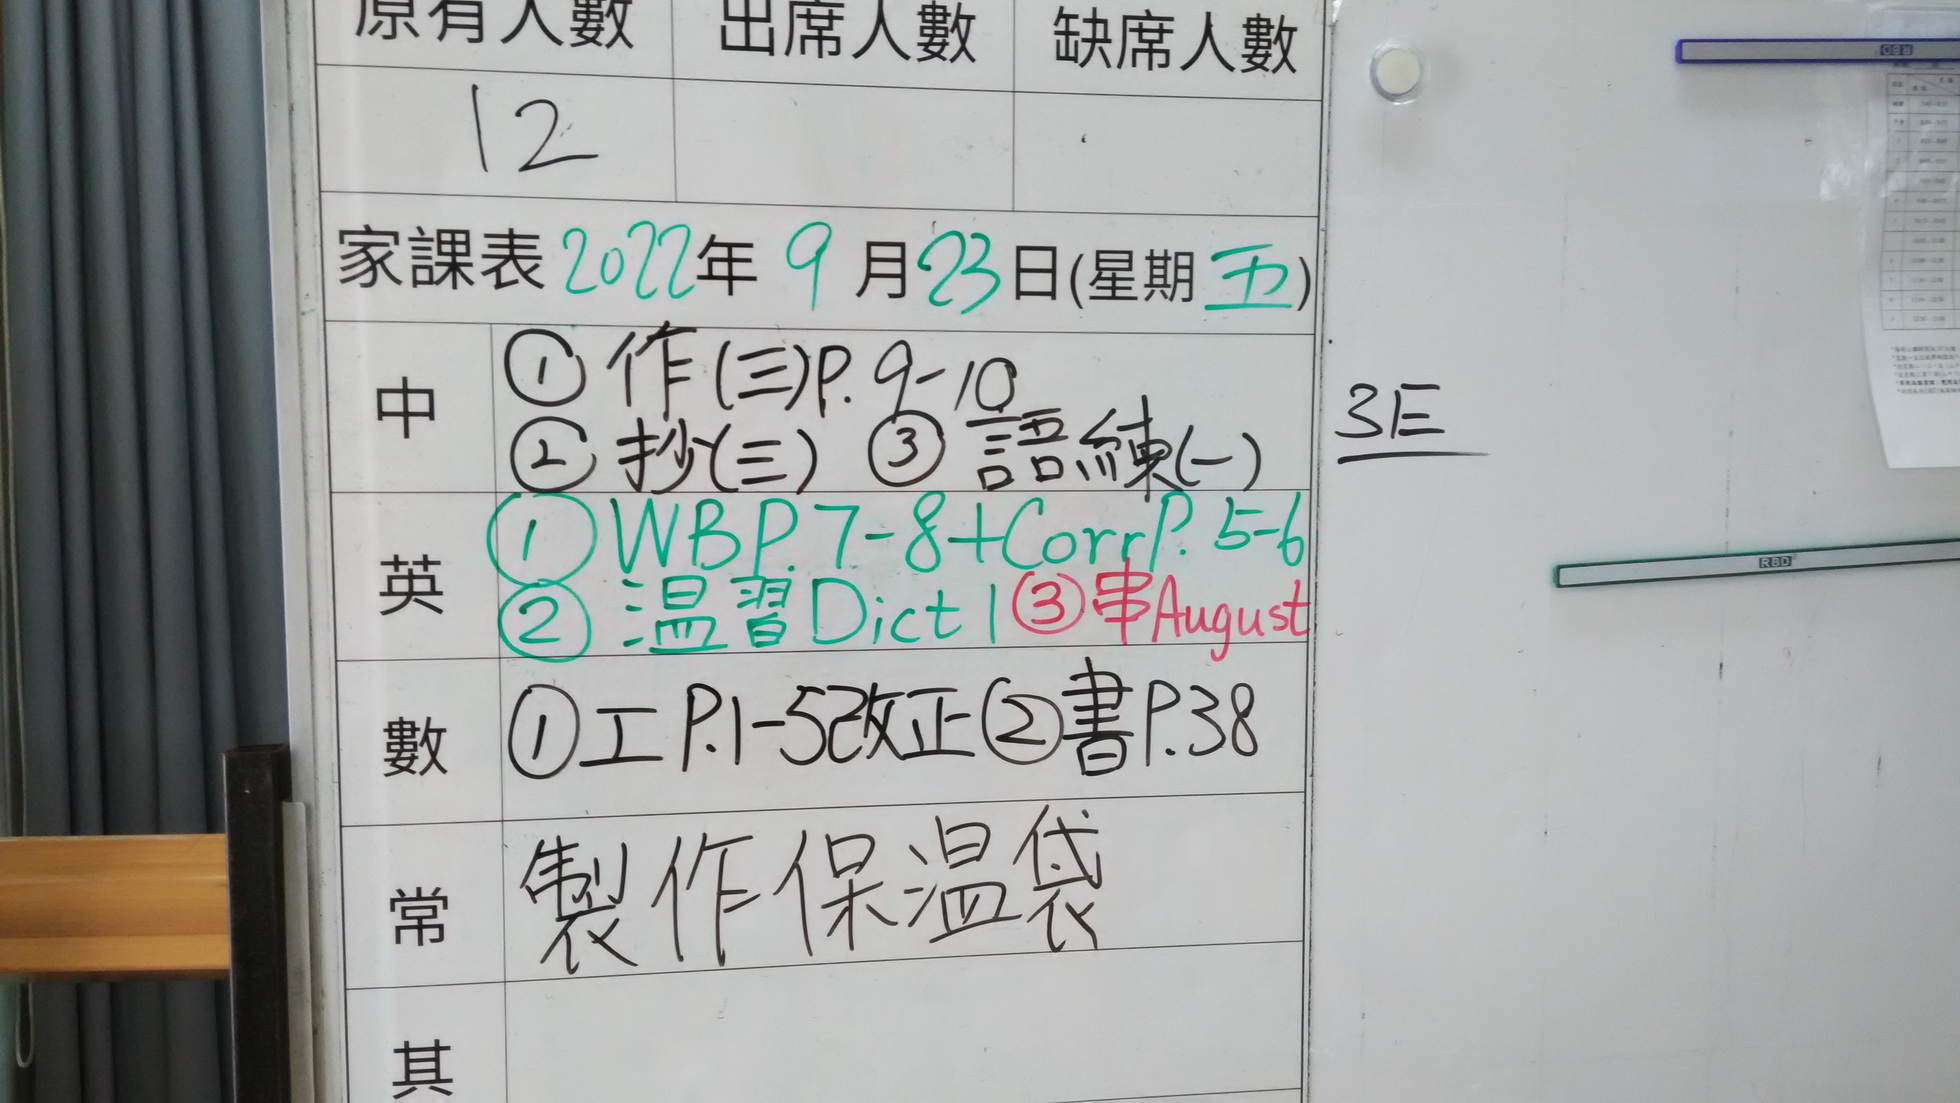 原有人數 出席人數 缺席人數
12
家課表 2022年 9月23日(星期五)
中 ① 作(三)P.9-10
② 抄(三) ③ 語練(一)
3E
英 ① WB P.7-8+Corr P.5-6
② 温習Dict 1 ③ 串August
數 ①工P.1-5改正②書P.38
常 製作保温袋
其
RBD
RBD